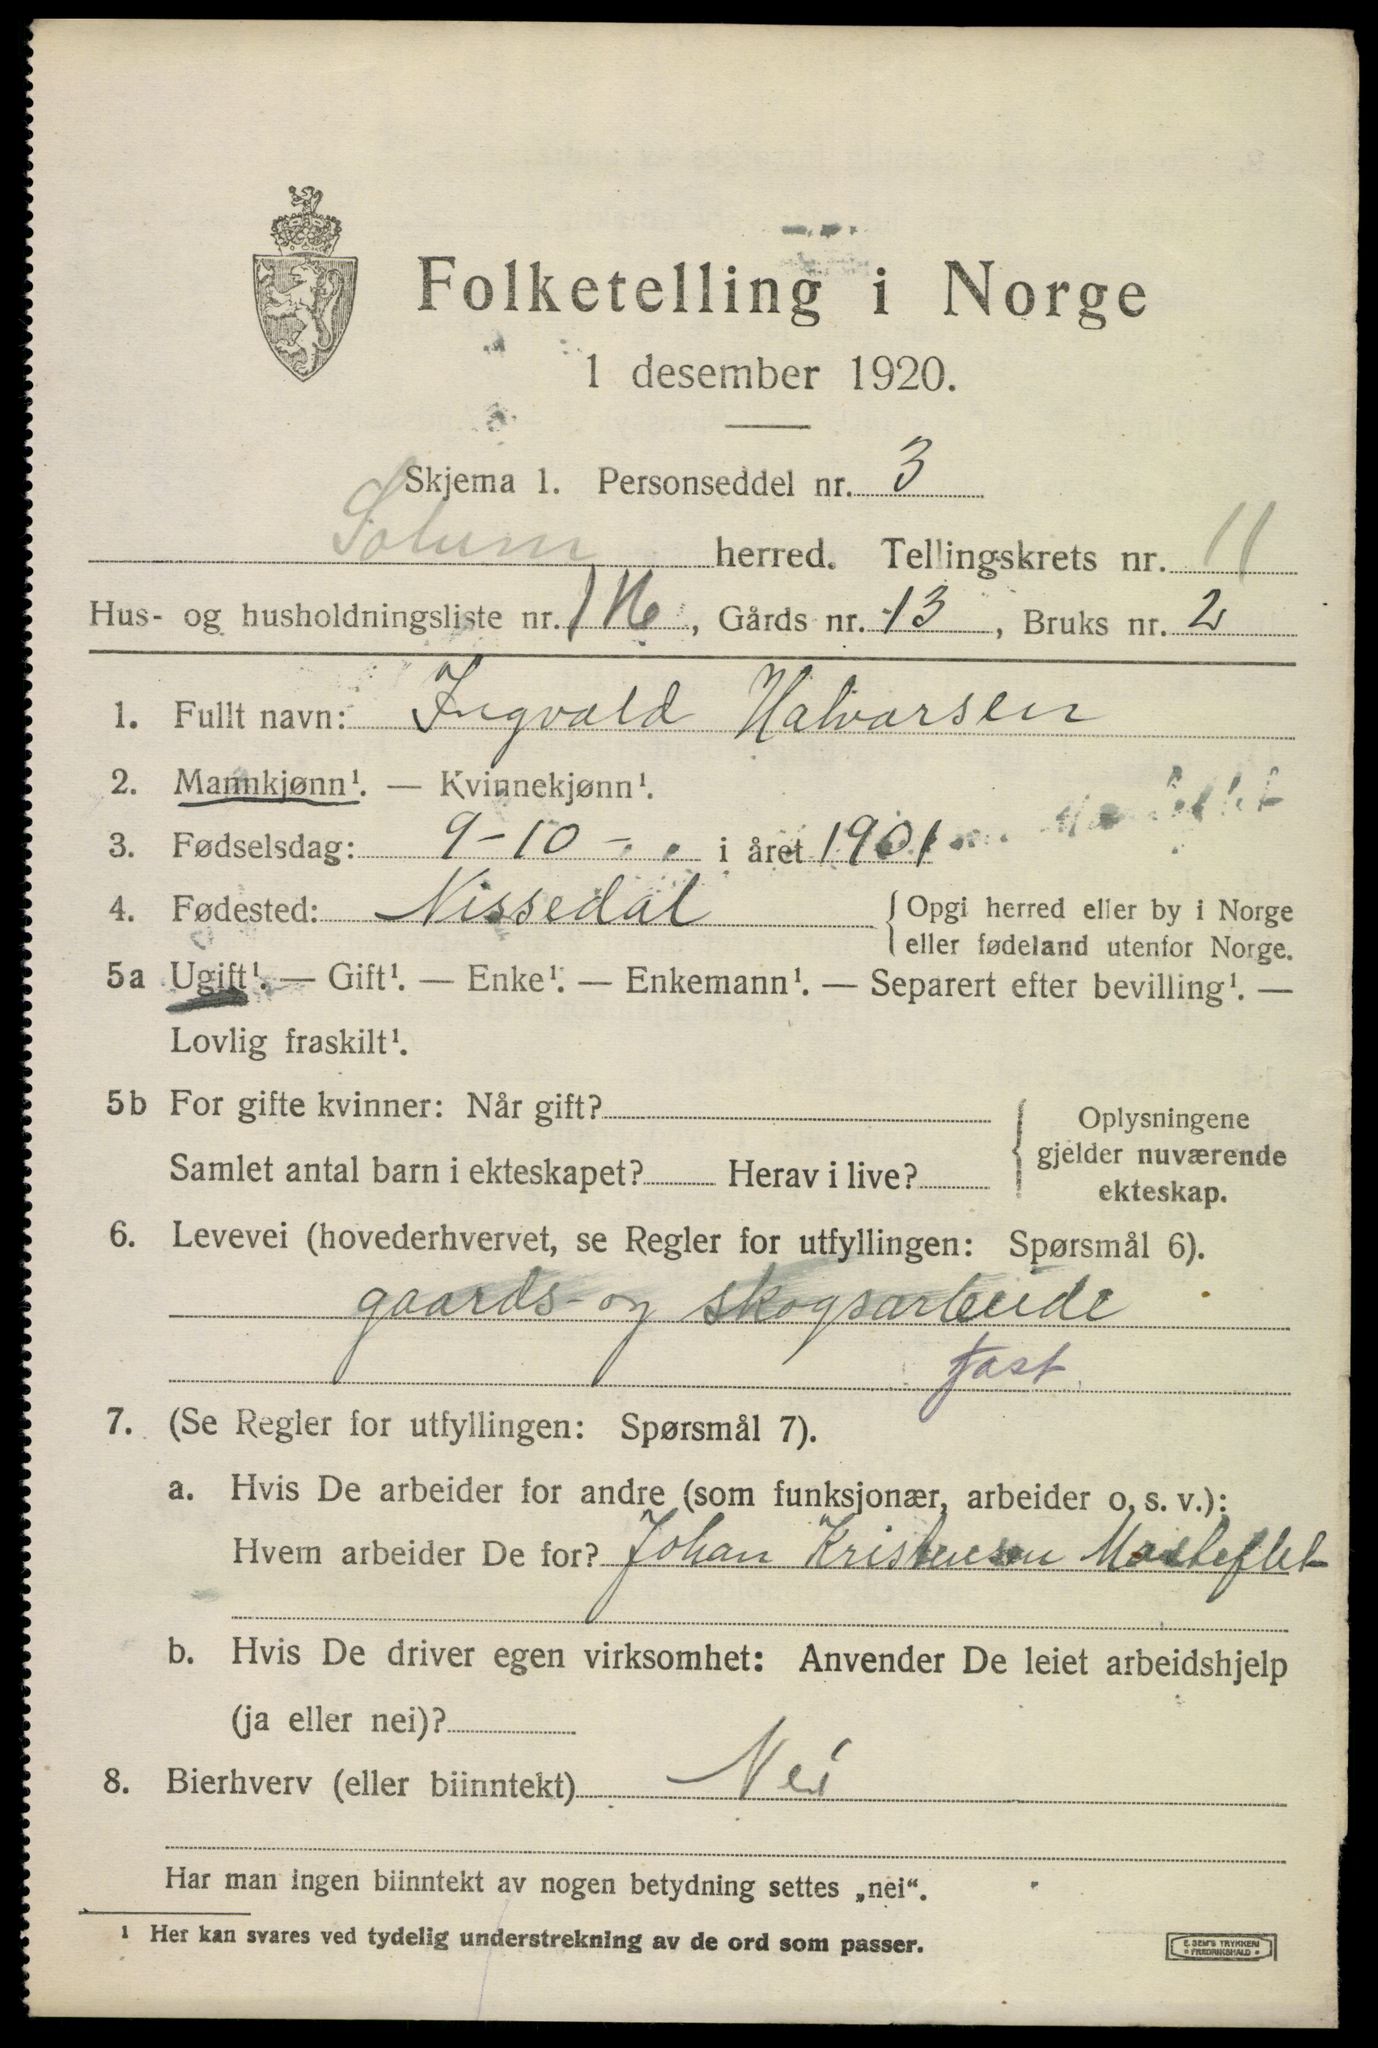 Folketelling i Norge
1 desember 1920.
Skjema 1. Personseddel nr. 3
Solum herred. Tellingskrets nr. 11
Hus- og husholdningsliste nr. , Gårds nr. 13, Bruks nr. 2
1. Fullt navn: Ingvald Halvorsen
2. Mannkjønn¹. — Kvinnekjønn¹.
3. Fødselsdag: 9-10- i året 1901
4. Fødested: Nissedal { Opgi herred eller by i Norge
eller fødeland utenfor Norge.
5a Ugift¹. — Gift¹. — Enke¹. — Enkemann¹. — Separert efter bevilling¹. —
Lovlig fraskilt¹.
5b For gifte kvinner: Når gift?
Samlet antal barn i ekteskapet? Herav i live?
{ Oplysningene
gjelder nuværende
ekteskap.
6. Levevei (hovederhvervet, se Regler for utfyllingen: Spørsmål 6).
gaards- og skogsarbeide
fast
7. (Se Regler for utfyllingen: Spørsmål 7).
a. Hvis De arbeider for andre (som funksjonær, arbeider o. s. v.):
Hvem arbeider De for? Johan Kristensen
b. Hvis De driver egen virksomhet: Anvender De leiet arbeidshjelp
(ja eller nei)?
8. Bierhverv (eller biinntekt) Nei
Har man ingen biinntekt av nogen betydning settes „nei“.
¹ Her kan svares ved tydelig understrekning av de ord som passer.
E. SEM'S TRYKKERI
FREDRIKSHALD